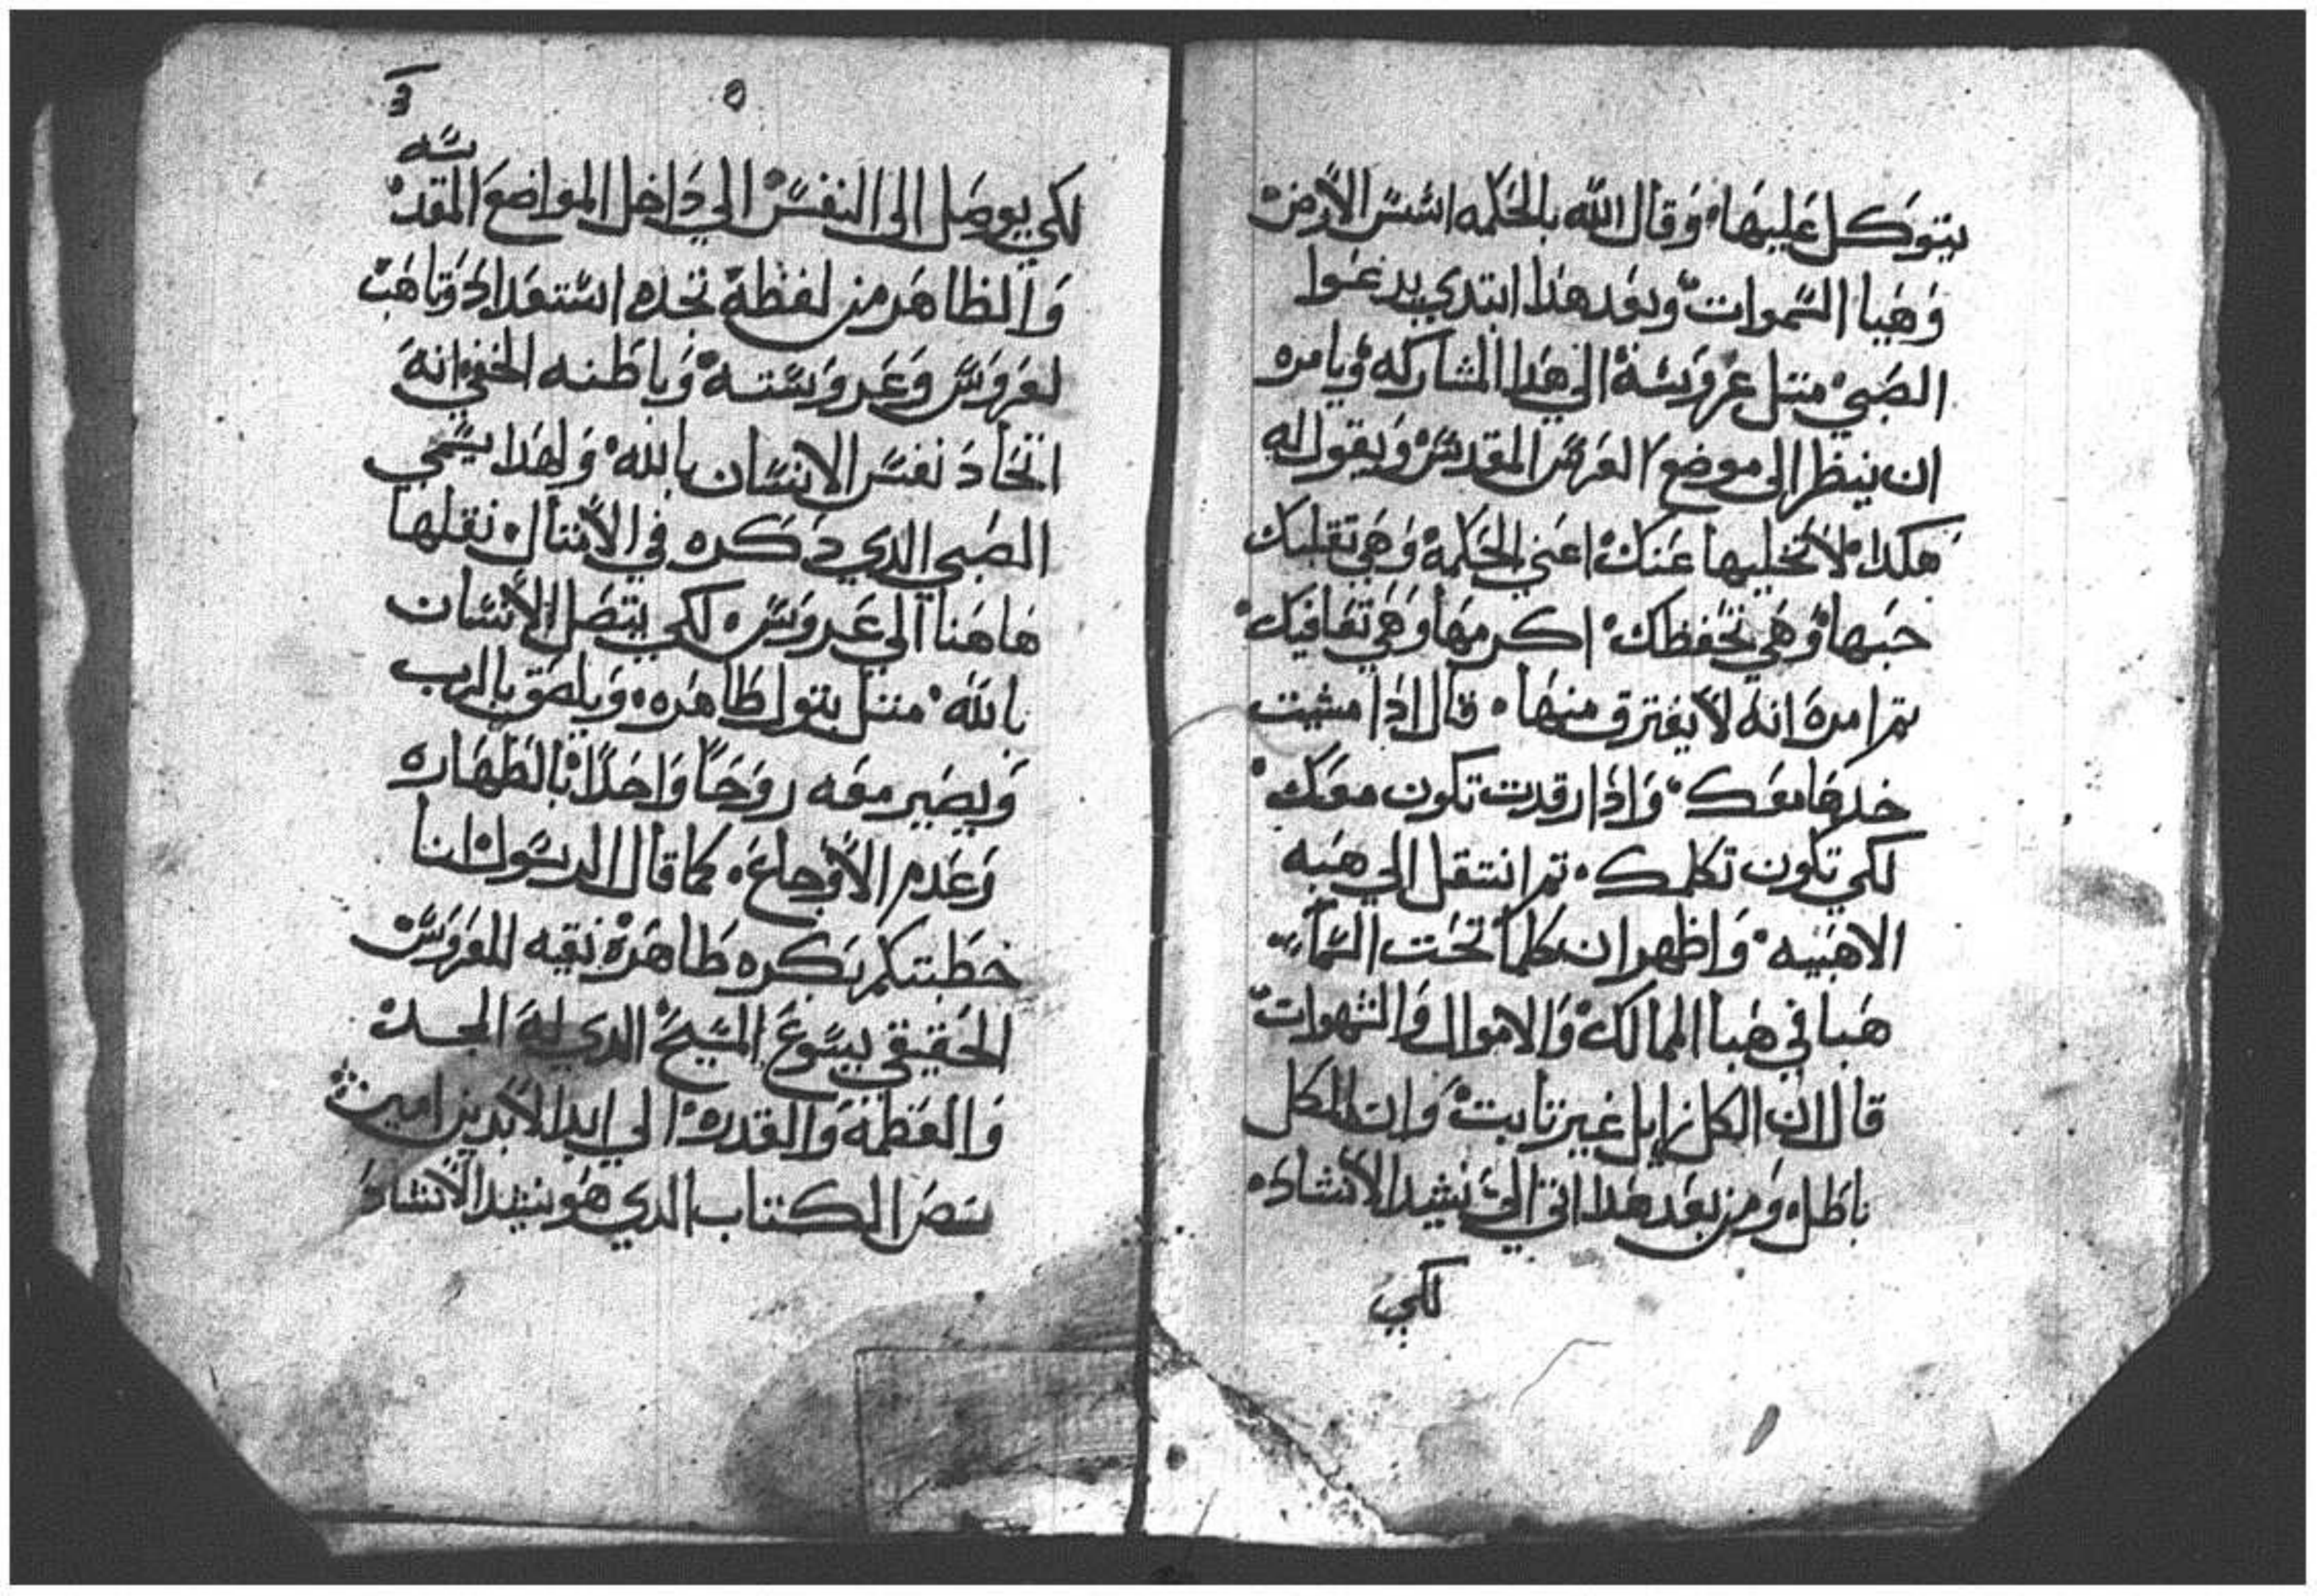 يتوكل عليها وقال الله بالحكمه اسس الارض
وهيا السموات وبعد هدا ابتدي يدعوا
الصبي مثل عروسة الي هدا المشاركه ويامره
ان ينظر الى موضع العرس المقدس ويقول له
هكدا لا تخليها عنك اعني الحكمة وهي تقلبك
حبها وهي تحفظك اكرمها وهي تعافيك
تم امره انه لا يفترق منها قال ادا مشيت
خدها معك وادا رقدت تكون معك
لكي تكون تكلمك تم انتقل الي هبه
الاهبيه واظهر ان كلما تحت السماء
هبا في هبا الممالك والاموال والشهوات
قال ان الكل زايل غير تابت وان الكل
باطل ومن بعد هدا اتى الى نشيد الانشاد
لكي
3 ٥
لكي يوصل الى النفس الي داخل المواضع المقدسه
والظاهر من لفظه تجده استعداد وتاهب
لعروس وعروسته وباطنه الخفي انه
اتحاد نفس الانسان بالله ولهدا يسمي
الصبي الدي دكره في الامتال نقلها
هاهنا الي عروس لكي يتصل الانسان
بالله متل بتول طاهره ويلصق بالرب
ويصير معه روحا واحدا بالطهاره
وعدم الاوجاع كما قال الرسول انا
خطبتكم بكره طاهرة نقيه للعروس
الحقيقي يسوع المسيح الدي له المجد
والعظمة والقدره الي ابد الابدين امين
نص الكتاب الدي هو نشيد الانشاد